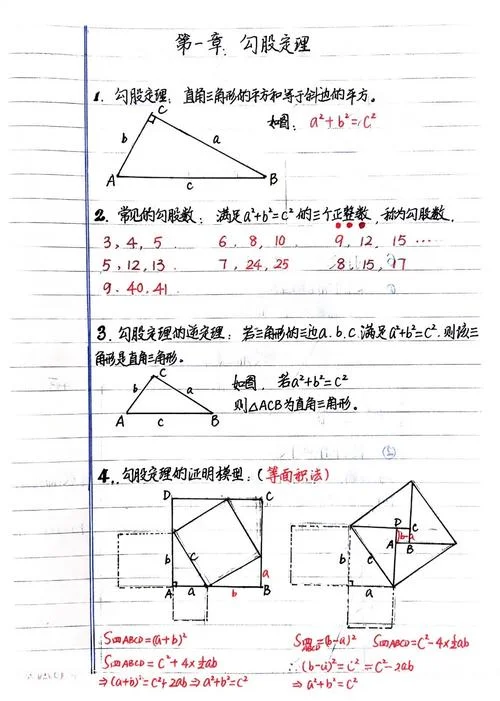 第一章 勾股定理
1. 勾股定理: 直角三角形的平方和等于斜边的平方。
如图: a²+b²=c²
C
b
a
A
c
B
2. 常见的勾股数: 满足a²+b²=c²的三个正整数, 称为勾股数.
3, 4, 5 . 6 . 8 , 10 . 9, 12, 15 ……
5, 12, 13 . 7, 24, 25 8, 15, 17
9. 40. 41.
3. 勾股定理的逆定理: 若三角形的三边a. b. c. 满足a²+b²=c². 则该三
角形是直角三角形.
C
b
a
A
c
B
如图. 若a²+b²=c²
则△ACB为直角三角形.
4. 勾股定理的证明模型: (等面积法)
D
C
b
c
a
A
a
b
B
D
C
b-a
A
B
b
c
a
S四ABCD=(a+b)²
S四ABCD= c²+4×½ab
⇒(a+b)²=c²+2ab⇒a²+b²=c²
S四ABCD=(b-a)² S四ABCD=c²-4×½ab
∴(b-a)²=c²=c²-2ab
⇒ a²+b²=c²